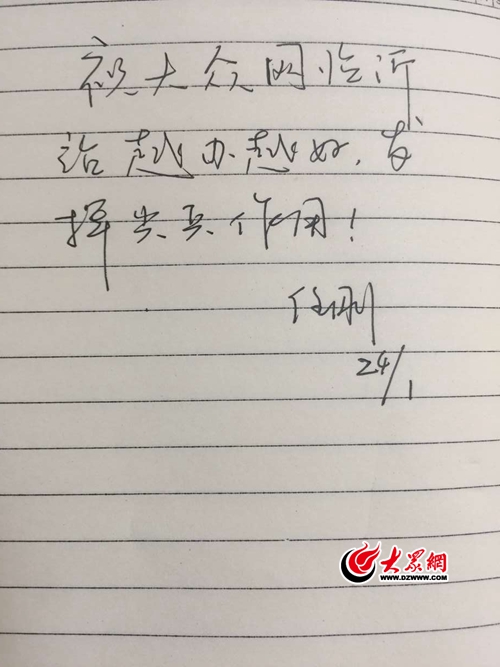 祝大众网临沂
站越办越好,发
挥尖兵作用!
任刚
24/1
大眾網
WWW.DZWWW.COM